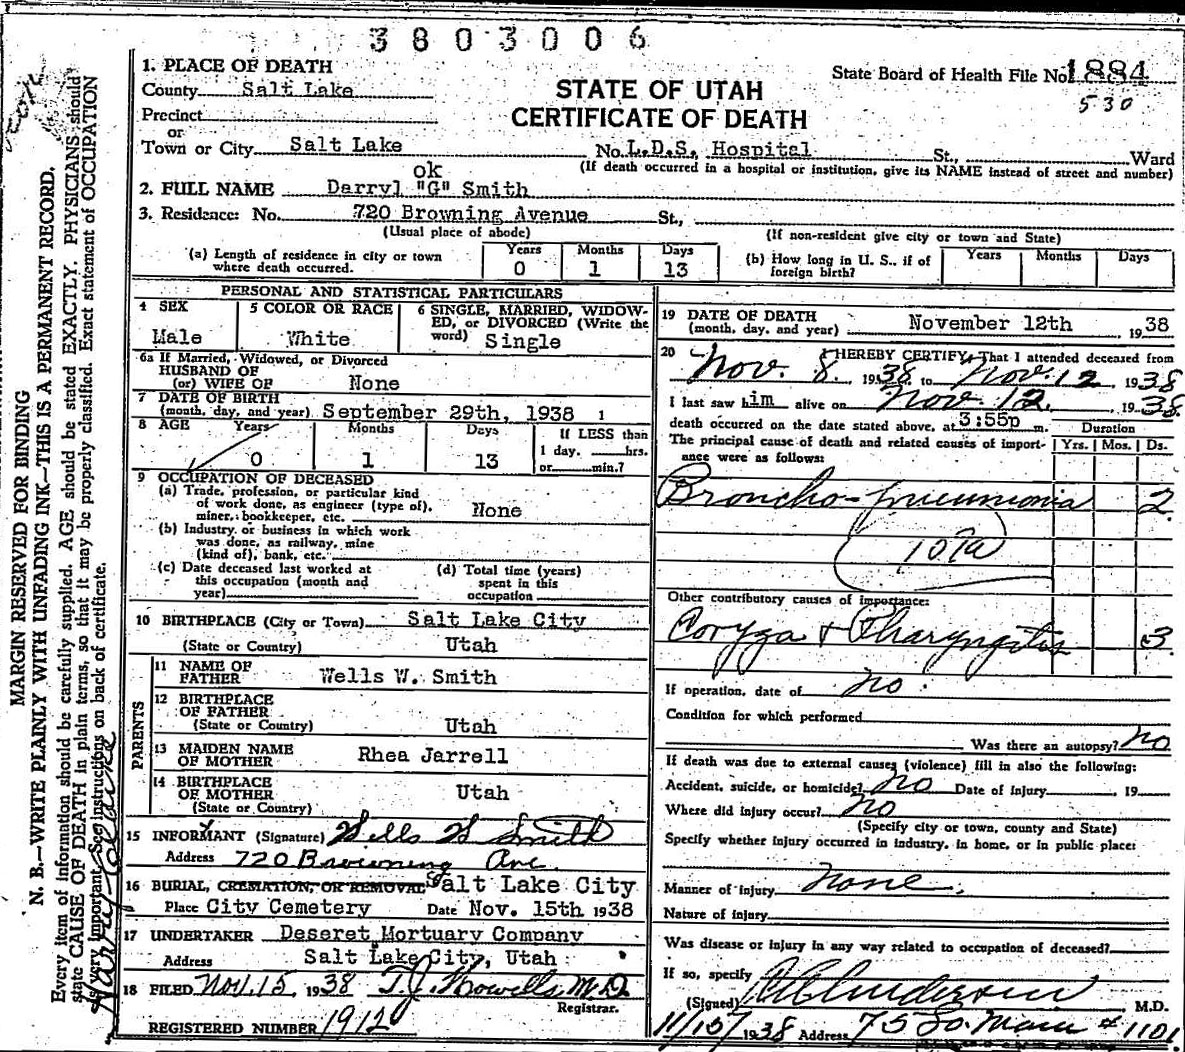 3803006
1. PLACE OF DEATH
County Salt Lake
Precinct
or
Town or City Salt Lake
STATE OF UTAH
CERTIFICATE OF DEATH
State Board of Health File No. 1884
530
No. L.D.S. Hospital St., Ward
(If death occurred in a hospital or institution, give its NAME instead of street and number)
ok
2. FULL NAME Darryl "G" Smith
3. Residence: No. 720 Browning Avenue St.,
(Usual place of abode)
(If non-resident give city or town and State)
(a) Length of residence in city or town where death occurred.
Years Months Days
0 1 13
(b) How long in U. S., if of foreign birth?
Years Months Days
PERSONAL AND STATISTICAL PARTICULARS
4 SEX
Male
5 COLOR OR RACE
White
6 SINGLE, MARRIED, WIDOWED, or DIVORCED (Write the word) Single
6a If Married, Widowed, or Divorced
HUSBAND OF
(or) WIFE OF None
7 DATE OF BIRTH
(month, day, and year) September 29th, 1938 1
8 AGE Years Months Days
0 1 13
If LESS than
1 day. hrs.
or min.?
9 OCCUPATION OF DECEASED
(a) Trade, profession, or particular kind
of work done, as engineer (type of),
miner, bookkeeper, etc. None
(b) Industry or business in which work
was done, as railway, mine
(kind of), bank, etc.
(c) Date deceased last worked at
this occupation (month and
year)
(d) Total time (years)
spent in this
occupation
10 BIRTHPLACE (City or Town) Salt Lake City
(State or Country) Utah
PARENTS
11 NAME OF
FATHER Wells W. Smith
12 BIRTHPLACE
OF FATHER
(State or Country) Utah
13 MAIDEN NAME
OF MOTHER Rhea Jarrell
14 BIRTHPLACE
OF MOTHER Utah
(State or Country)
15 INFORMANT (Signature) Wells W Smith
Address 720 Browning Ave.
16 BURIAL, CREMATION, OR REMOVAL Salt Lake City
Place City Cemetery Date Nov. 15th 1938
17 UNDERTAKER Deseret Mortuary Company
Address Salt Lake City, Utah
18 FILED Nov. 15, 1938 T.J. Howells M.D.
Registrar.
REGISTERED NUMBER 1912
19 DATE OF DEATH
(month, day, and year) November 12th 1938
20 I HEREBY CERTIFY, That I attended deceased from
Nov. 8, 1938 to Nov. 12 1938
I last saw him alive on Nov 12, 1938
death occurred on the date stated above, at 3:55p m.
Duration
The principal cause of death and related causes of importance were as follows:
Yrs. Mos. Ds.
Broncho-pneumonia 2
107a
Other contributory causes of importance:
Coryza & Pharyngitis 3
If operation, date of no.
Condition for which performed
Was there an autopsy? no
If death was due to external causes (violence) fill in also the following:
Accident, suicide, or homicide? no Date of injury 19
Where did injury occur? no
(Specify city or town, county and State)
Specify whether injury occurred in industry, in home, or in public place:
Manner of injury none.
Nature of injury
Was disease or injury in any way related to occupation of deceased?
If so, specify
(Signed) Anderson M.D.
11/15/1938 Address 75 So. Main # 1101.
MARGIN RESERVED FOR BINDING
N. B.—WRITE PLAINLY WITH UNFADING INK—THIS IS A PERMANENT RECORD.
Every item of information should be carefully supplied. AGE should be stated EXACTLY. PHYSICIANS should
state CAUSE OF DEATH in plain terms, so that it may be properly classified. Exact statement of OCCUPATION
is very important. See instructions on back of certificate.